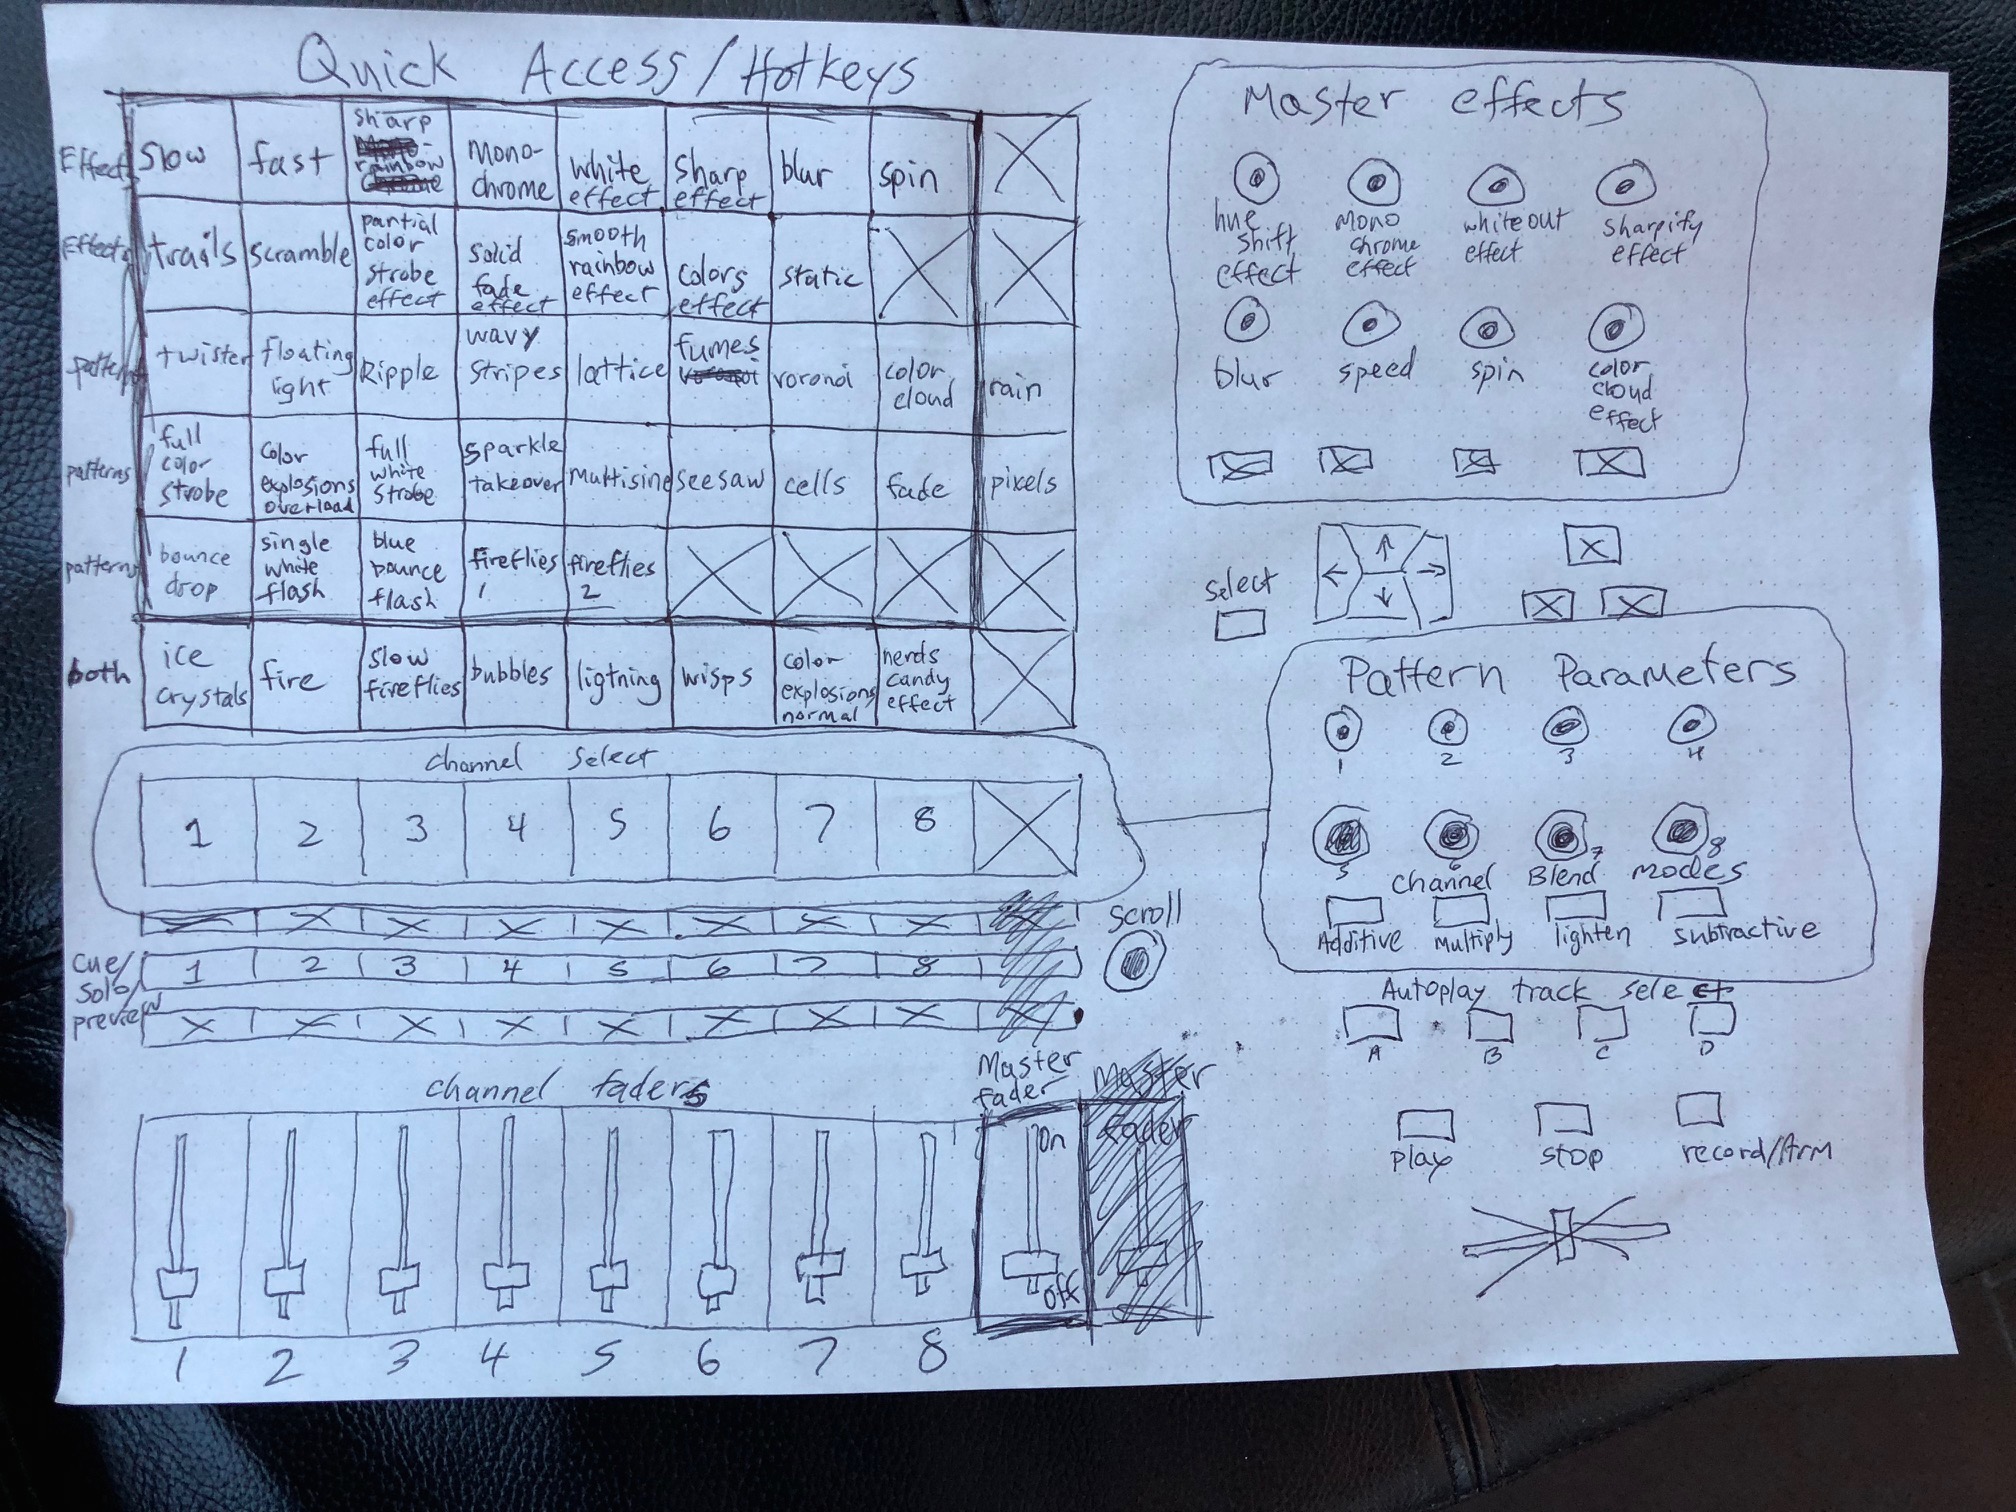 Quick Access/Hotkeys
Effects
slow
fast
sharp
rainbow
Mono-
chrome
white
effect
sharp
effect
blur
spin
Effects
trails
scramble
partial
color
strobe
effect
solid
fade
effect
smooth
rainbow
effect
colors
effect
static
patterns
twister
floating
light
Ripple
wavy
stripes
lattice
fumes
voronoi
color
cloud
rain
patterns
full
color
strobe
color
explosions
overload
full
white
strobe
sparkle
takeover
Multisine
seesaw
cells
fade
pixels
patterns
bounce
drop
single
white
flash
blue
bounce
flash
fireflies
1
fireflies
2
both
ice
crystals
fire
slow
fireflies
bubbles
ligtning
wisps
color
explosions
normal
nerds
candy
effect
channel select
1 2 3 4 5 6 7 8
scroll
Cue/
Solo/
preview
1 2 3 4 5 6 7 8
channel faders
Master
fader
Master
fader
On
Off
1 2 3 4 5 6 7 8
Master effects
hue
shift
effect
Mono
chrome
effect
whiteout
effect
sharpify
effect
blur
speed
spin
color
cloud
effect
select
Pattern Parameters
1 2 3 4
5 6 7 8
Channel Blend modes
Additive
Multiply
lighten
subtractive
Autoplay track select
A B C D
play
stop
record/Arm